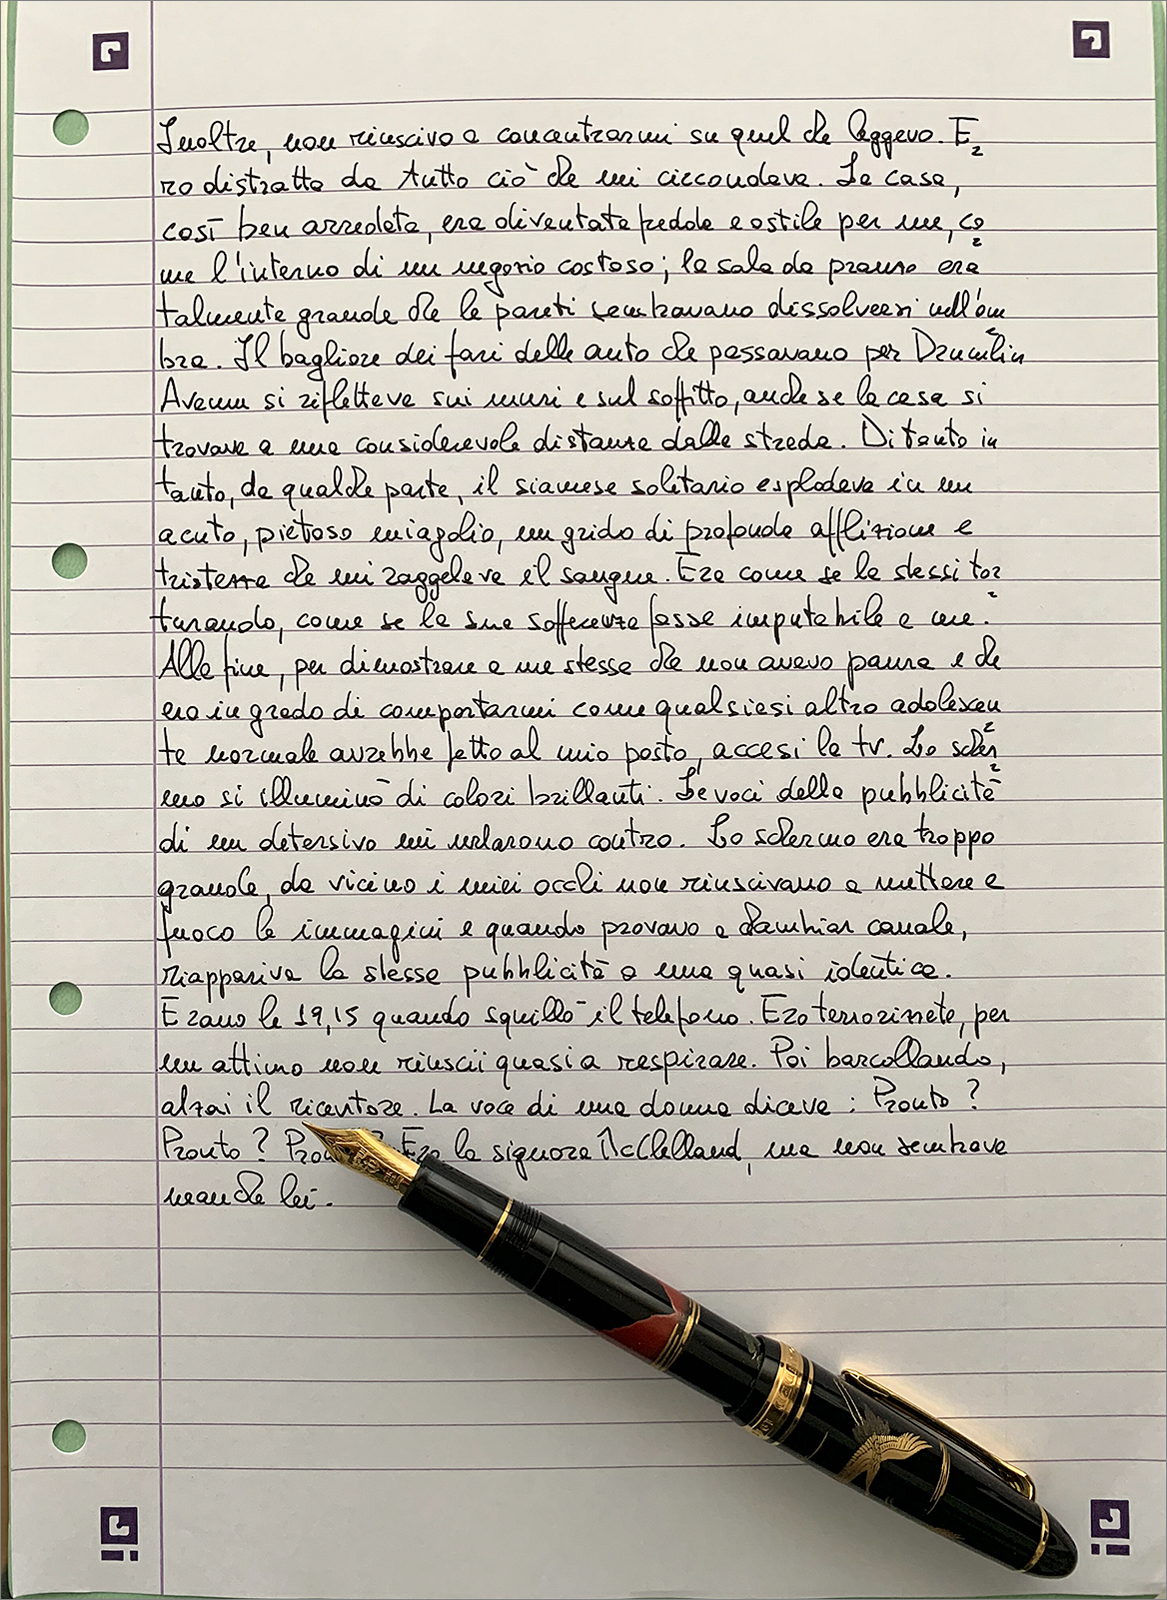 Inoltre, non riuscivo a concentrarmi su quel che leggevo. E=
ro distratta da tutto ciò che mi circondava. La casa,
così ben arredata, era diventata fredda e ostile per me, co=
me l'interno di un negozio costoso; la sala da pranzo era
talmente grande che le pareti sembravano dissolversi nell'om=
bra. Il bagliore dei fari delle auto che passavano per Drumlin
Avenue si rifletteva sui muri e sul soffitto, anche se la casa si
trovava a una considerevole distanza dalla strada. Di tanto in
tanto, da qualche parte, il siamese solitario esplodeva in un
acuto, pietoso miagolio, un grido di profonda afflizione e
tristezza che mi raggelava il sangue. Era come se lo stessi tor=
turando, come se la sua sofferenza fosse imputabile a me.
Alla fine, per dimostrare a me stessa che non avevo paura e che
ero in grado di comportarmi come qualsiasi altro adolescen=
te normale avrebbe fatto al mio posto, accesi la tv. Lo scher=
mo si illuminò di colori brillanti. Le voci della pubblicità
di un detersivo mi urlarono contro. Lo schermo era troppo
grande, da vicino i miei occhi non riuscivano a mettere a
fuoco le immagini e quando provavo a cambiar canale,
riappariva la stessa pubblicità o una quasi identica.
Erano le 19,15 quando squillò il telefono. Ero terrorizzata, per
un attimo non riuscii quasi a respirare. Poi barcollando,
alzai il ricevitore. La voce di una donna diceva: Pronto?
Pronto? Era la signora McClelland, ma non sembrava
neanche lei.